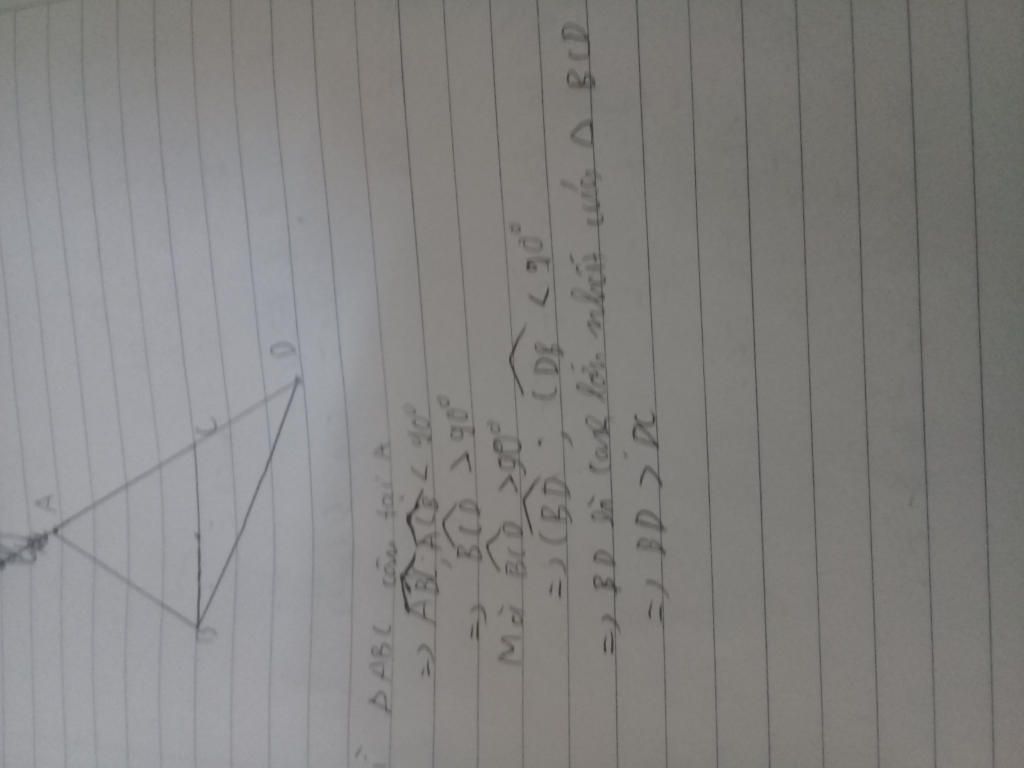 A
B
C
D
Δ ABC cân tại A
=> ABC, ACB < 90°
=> BCD > 90°
Mà BCD > 90°
=> CBD, CDB < 90°
=> BD là cạnh lớn nhất Δ BCD
=> BD > DC